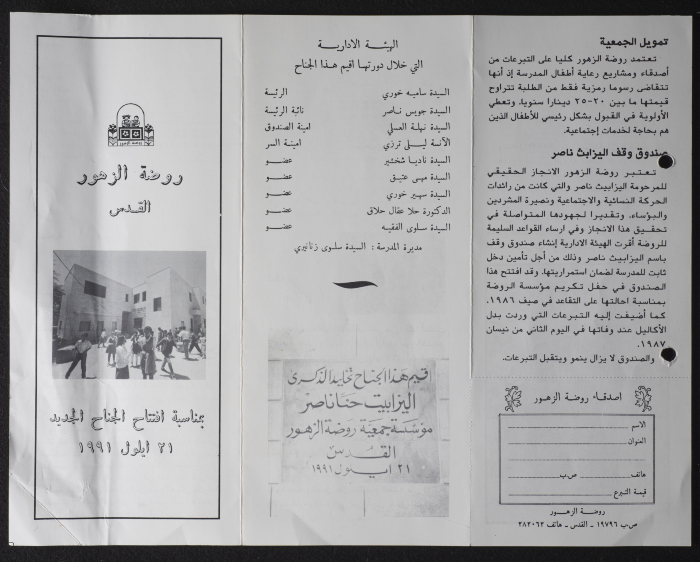 تمويل الجمعية
تعتمد روضة الزهور كليا على التبرعات من
أصدقاء ومشاريع رعاية أطفال المدرسة إذ أنها
تتقاضى رسوما رمزية فقط من الطلبة تتراوح
قيمتها ما بين ٢٠-٢٥ دينارا سنويا. وتعطي
الأولوية في القبول بشكل رئيسي للأطفال الذين
هم بحاجة لخدمات إجتماعية.
صندوق وقف اليزابث ناصر
تعتبر روضة الزهور الانجاز الحقيقي
للمرحومة اليزابيث ناصر والتي كانت من رائدات
الحركة النسائية والاجتماعية ونصيرة المشردين
والبؤساء. وتقديرا لجهودها المتواصلة في
تحقيق هذا الانجاز وفي ارساء القواعد السليمة
للروضة أقرت الهيئة الادارية إنشاء صندوق وقف
باسم اليزابيث ناصر وذلك من أجل تأمين دخل
ثابت للمدرسة لضمان استمراريتها. وقد افتتح هذا
الصندوق في حفل تكريم مؤسسة الروضة
بمناسبة احالتها على التقاعد في صيف ١٩٨٦.
كما أضيفت إليه التبرعات التي وردت بدل
الأكاليل عند وفاتها في اليوم الثاني من نيسان
١٩٨٧.
والصندوق لا يزال ينمو ويتقبل التبرعات.
اصدقاء روضة الزهور
الاسم
العنوان
هاتف ص.ب
قيمة التبرع
روضة الزهور
ص.ب ١٩٧٩٦ - القدس - هاتف ٢٨٢٠٦٢
الهيئة الادارية
التي خلال دورتها اقيم هذا الجناح
السيدة سامية خوري الرئيسة
السيدة جويس ناصر نائبة الرئيسة
السيدة نهلة العسلي امينة الصندوق
الآنسة ليلى ترزي امينة السر
السيدة ناديا شختير عضو
السيدة مهى عتيق عضو
السيدة سهير خوري عضو
الدكتورة حلا عقال حلاق عضو
السيدة سلوى الفقيه عضو
مديرة المدرسة : السيدة سلوى زنانيري
اقيم هذا الجناح تخليدا لذكرى
اليزابيت حنا ناصر
مؤسسة جمعية روضة الزهور
القدس
٢١ ايلول ١٩٩١
روضة الزهور
القدس
بمناسبة افتتاح الجناح الجديد
٢١ أيلول ١٩٩١